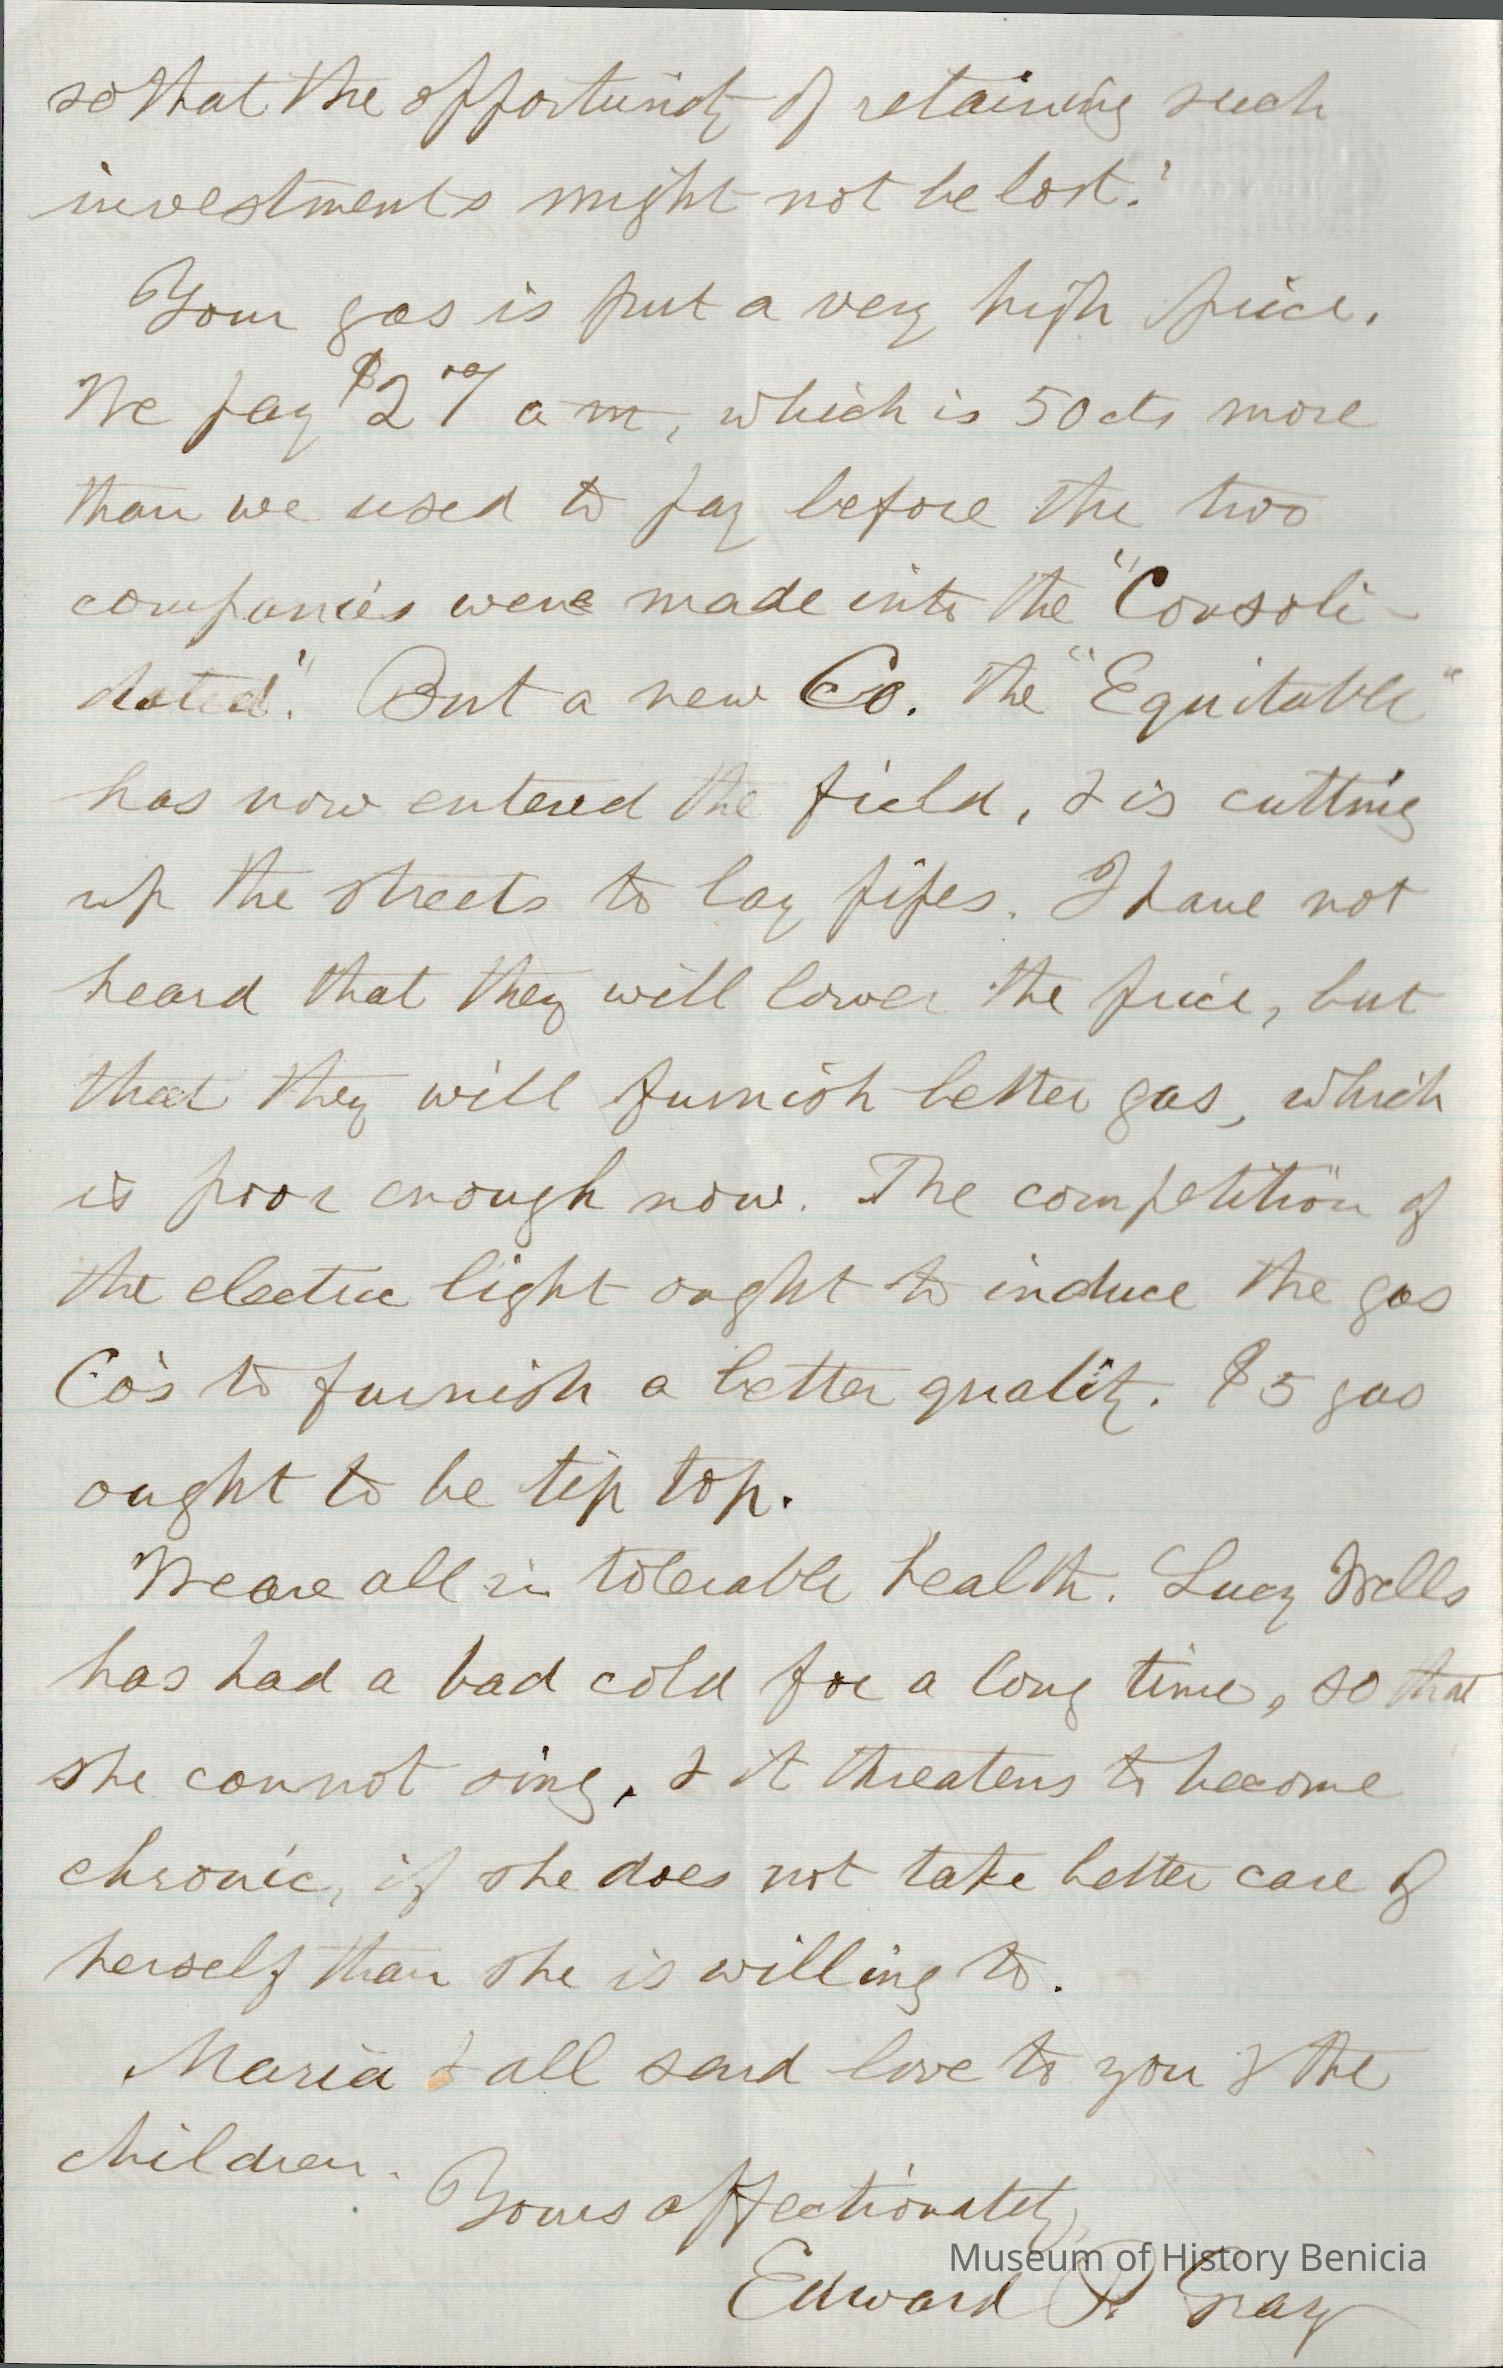 so that the opportunity of retaining such
investments might not be lost."
Your gas is put a very high price.
We pay $2 a m, which is 50 cts more
than we used to pay before the two
companies were made into the "Consoli-
dated". But a new Co. the "Equitable"
has now entered the field, & is cutting
up the streets to lay pipes. I have not
heard that they will lower the price, but
that they will furnish better gas, which
is poor enough now. The competition of
the electric light ought to induce the gas
Co's to furnish a better quality. $5 gas
ought to be tip top.
We are all in tolerable health. Lucy Wells
has had a bad cold for a long time, so that
she cannot sing, & it threatens to become
chronic, if she does not take better care of
herself than she is willing to.
Maria & all send love to you & the
children.
Yours affectionately,
Museum of History Benicia
Edward P. Gray